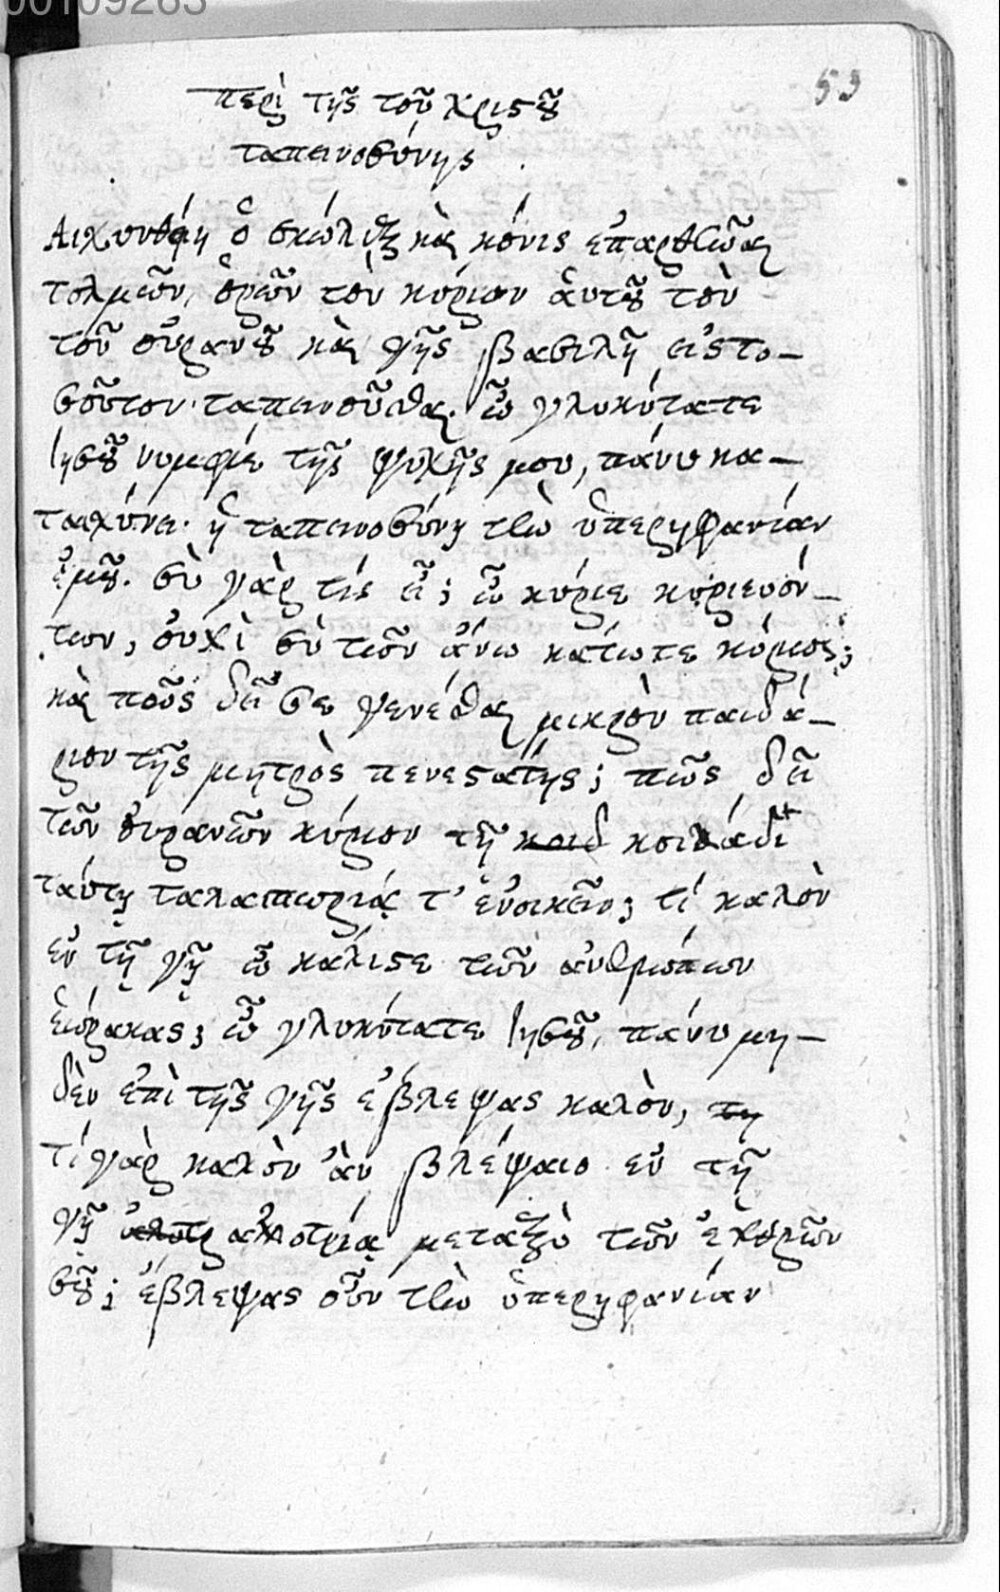 00109263
53
περὶ τῆς τοῦ χριστοῦ
ταπεινοσύνης
Αἰχυνθείη ὁ σκώληξ καὶ κόνις ἐπαρθῶναι
τολμῶν, ὁρῶν τὸν κύριον ἀυτοῦ τὸν
τοῦ οὐρανοῦ καὶ γῆς βασιλῆ εἰςτο-
σοῦτον ταπεινοῦσθαι. ὦ γλυκύτατε
Ιησοῦ νυμφίε τῆς ψυχῆς μου, πάνυ κα-
ταιχύνει ἡ ταπεινοσύνη τὴν ὑπερηφανίαν
ἐμοῦ. σὺ γὰρ τίς εἶ; ὦ κύριε κυριευόν-
των, ὀυχὶ σὺ τῶν ἄνω κάτωτε κύριος;
καὶ ποῦς δεῖ σε γενέσθαι μικρὸν παιδά-
ριον τῆς μητρὸς πενεστάτης; πῶς δεῖ
τῶν ὀυρανῶν κύριον τῇ κοιδ κοιλάδι
ταύτῃ ταλαιπωρίας τ' ἐνοικεῖν; τί καλὸν
ἐν τῇ γῇ ὦ κάλιστε τῶν ἀνθρώπων
ἑώρακας; ὦ γλυκύτατε Ιησοῦ, πάνυ μη-
δὲν ἐπὶ τῆς γῆς ἐβλεψας καλὸν, τη
τί γὰρ καλὸν ἂν βλέψαιο ἐν τῇ
γῇ αλοτρ αλλοτρίᾳ μεταξὺ τῶν ἐχθρῶν
σοῦ; ἔβλεψας οὖν τὴν ὑπερηφανίαν